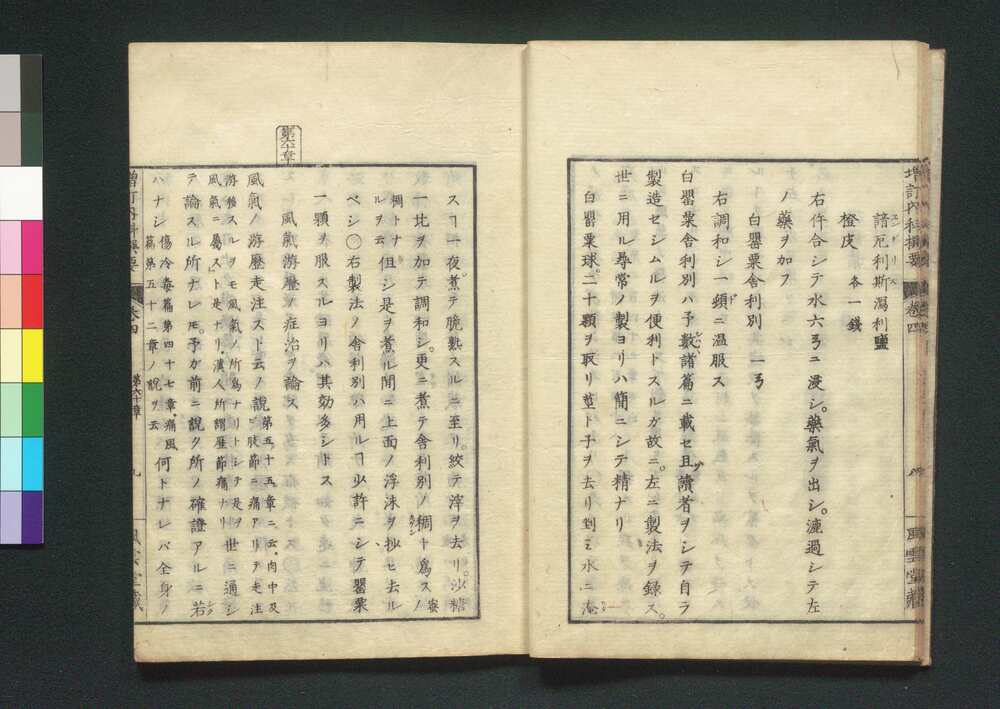 諳厄利斯瀉利鹽
橙皮 各一錢
右件合シテ水六弓ニ浸シ。藥氣ヲ出シ。漉過シテ左
ノ藥ヲ加フ
白罌粟舎利別 一弓
右調和シ一頓ニ温服ス
白罌粟舎利別ハ予數諸篇ニ載セ且讀者ヲシテ自ラ
製造セシムルヲ便利トスルガ故ニ。左ニ製法ヲ録ス。
世ニ用ル尋常ノ製ヨリハ簡ニシテ精ナリ
白罌粟球二十顆ヲ取リ莖ト子ヲ去リ剉ミ水ニ淹
スヿ一夜。煮テ脆熟スルニ至リ。絞テ滓ヲ去リ。沙糖
一比ヲ加テ調和シ。更ニ煮テ舎利別ノ稠ト爲ス蜜
稠トナ
ルヲ云
但シ是ヲ煮ル間ニ上面ノ浮沫ヲ抄ヒ去ル
ベシ○右製法ノ舎利別ハ用ルヿ少許ニシテ罌粟
一顆ヲ服スルヨリハ其効多シトス
第六十章
風氣游歴ノ症治ヲ論ス
風氣ノ游歴走注スト云ノ說
第五十五章ニ云。肉中及
ビ肢節ニ痛アリテ走注
游移スルヲモ風氣ノ所爲ナリトシテ是ヲ
風氣ニ屬スト是ナリ漢人所謂歴節痛ナリ
世ニ通シ
テ論スル所ナレ𪜈。予ガ前ニ說ク所ノ確證アルニ若
ハナシ
傷冷毒篇第四十七章。痛風
篇第五十二章ノ說ヲ云
何トナレバ全身ノ
增訂内科撮要
卷四
第六十章
九
風雲堂藏